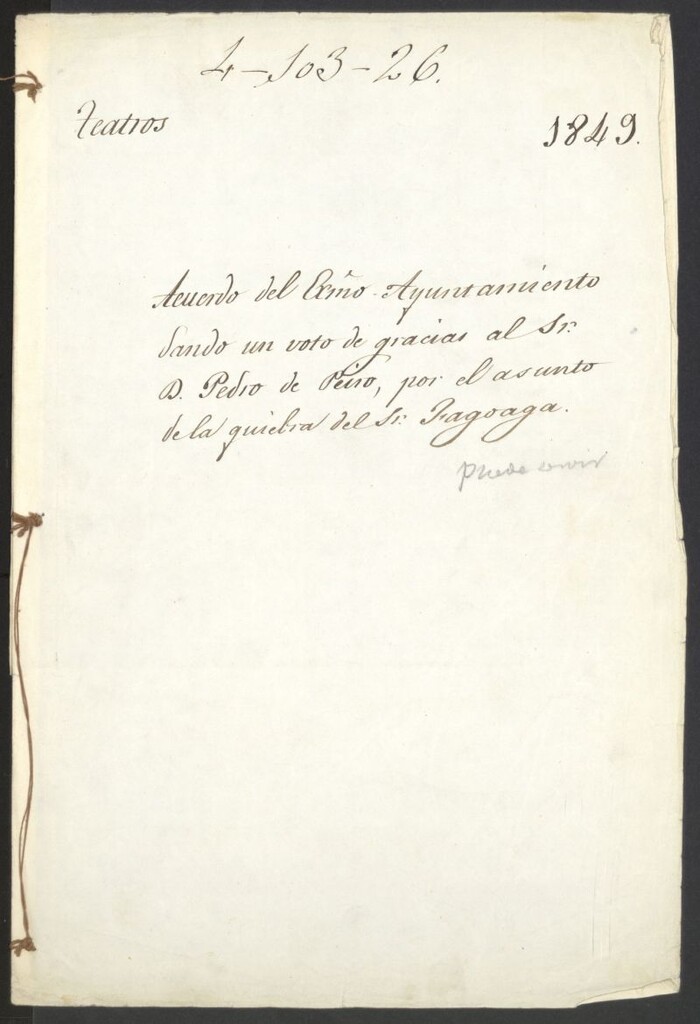 4-103-26.
Teatros
1849.
Acuerdo del Exmo. Ayuntamiento
dando un voto de gracias al Sr.
D. Pedro de Peiro, por el asunto
de la quiebra del Sr. Fagoaga.
puede